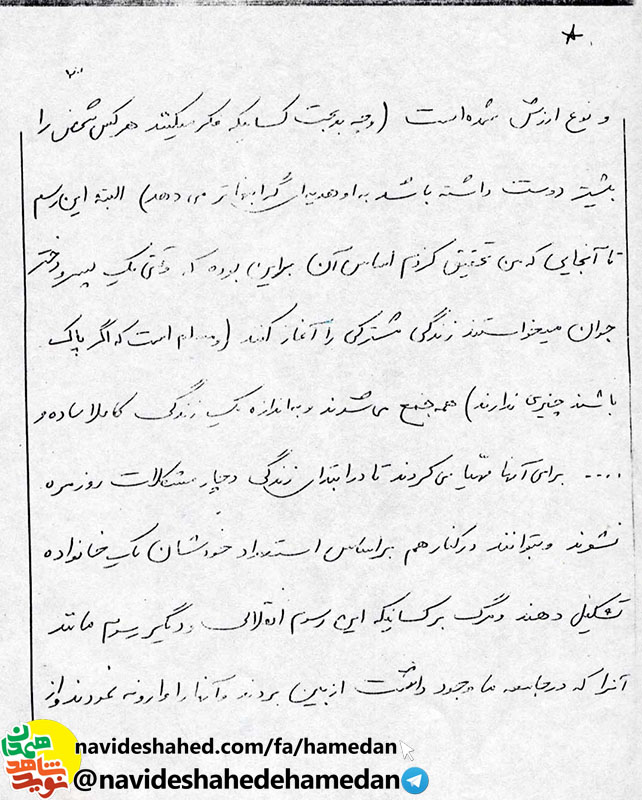 ۸
و نوع ارزش شده‌است (و چه بدبخت کسانیکه فکر میکنند هر کس شخصی را
بیشتر دوست داشته باشد به او هدیه‌ای گرانبهاتر می دهد) البته این رسم
تا آنجایی که من تحقیق کردم اساس آن براین بوده که وقتی یک پسر و دختر
جوان میخواستند زندگی مشترکی را آغاز کنند (و است که اگر پاک
باشند چیزی ندارند) همه جمع می شوند و به اندازه یک زندگی کاملا ساده و
.... برای آنها مهّیا می کردند تا در ابتدای زندگی دچار مشکلات روزمره
نشوند و بتوانند در کنار هم براساس استعداد خودشان یک خانواده
تشکیل دهند و مرگ بر کسانیکه این رسوم انقلابی و دیگر رسوم مانند
آنرا که در جامعه ما وجود داشت از بین بردند و آنها را وارونه نمودند و از
navideshahed.com/fa/hamedan
@navideshahedehamedan
نوید شاهد همدان